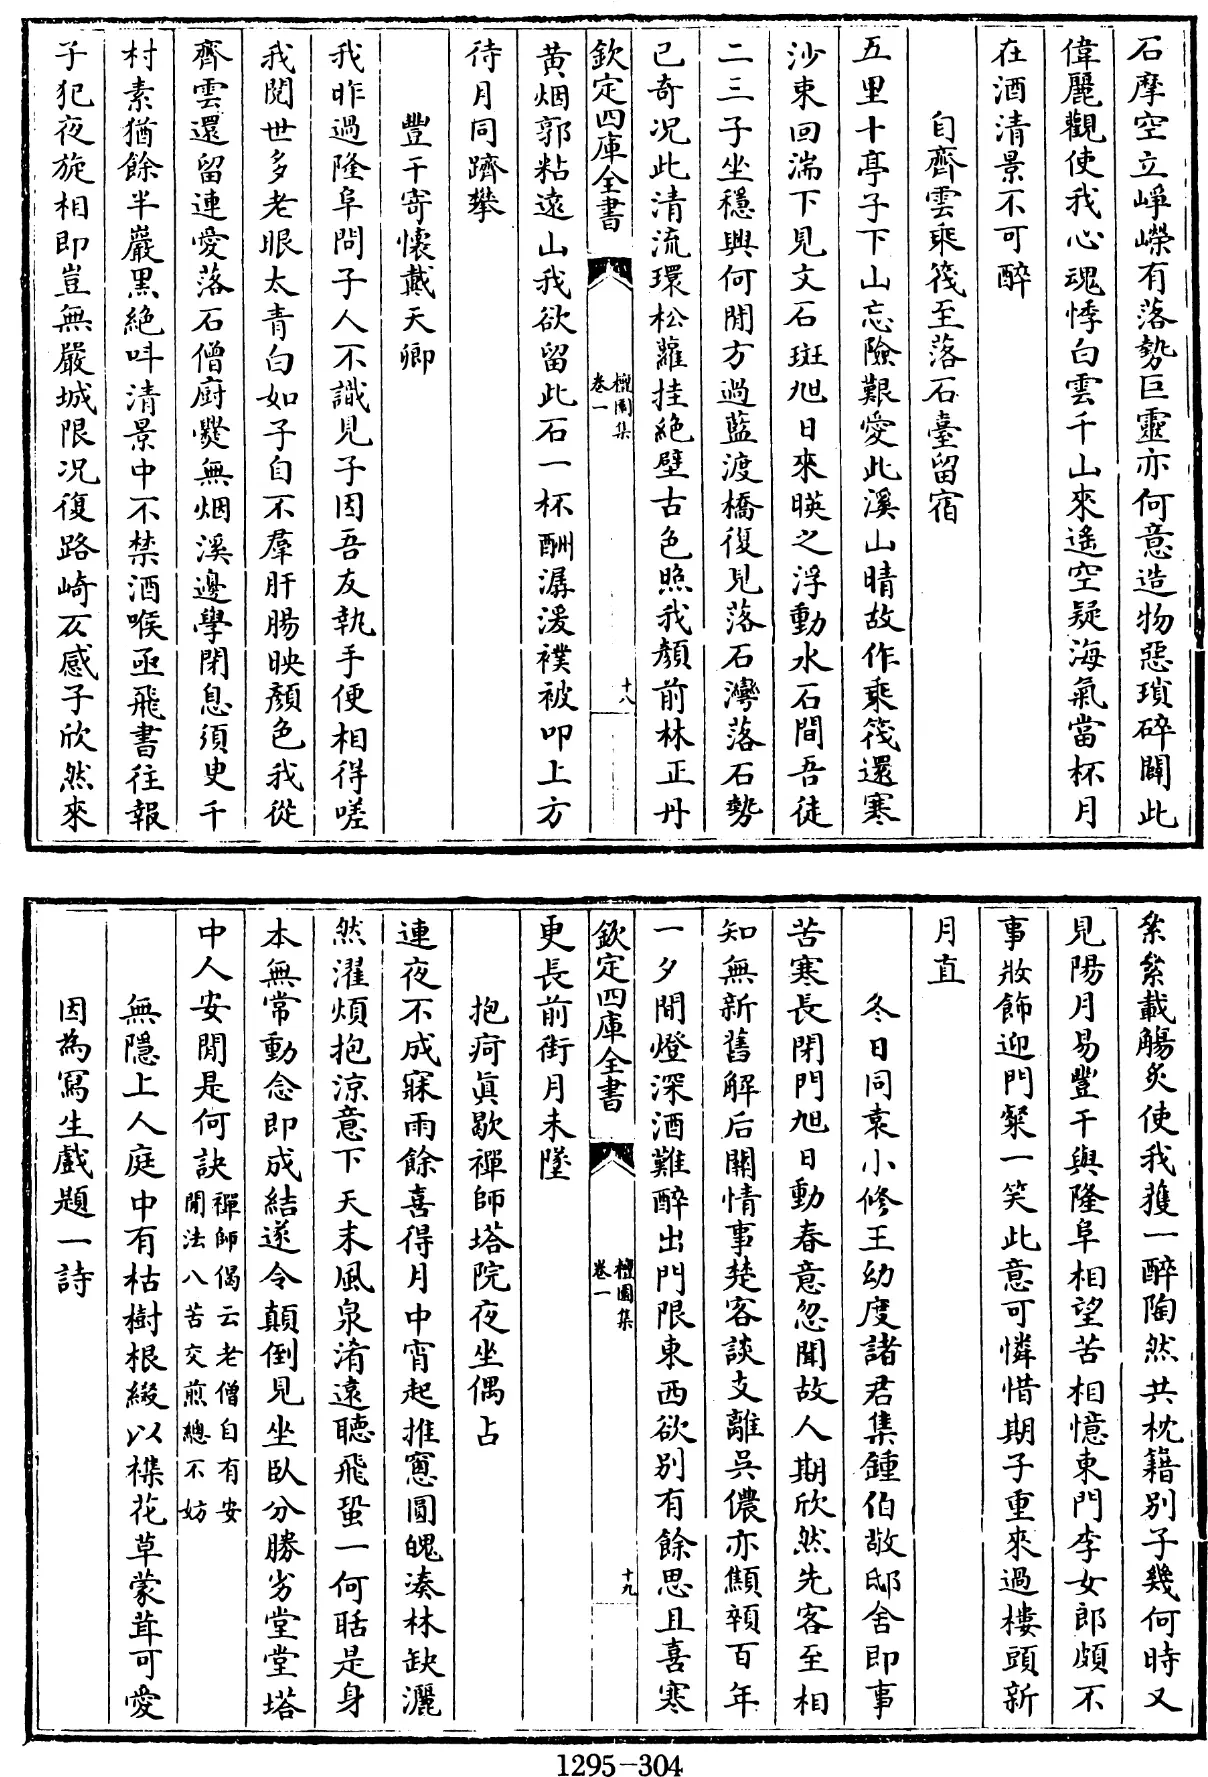 石摩空立崢嶸有落勢巨靈亦何意造物惡瑣碎闢此
偉麗觀使我心魂悸白雲千山來遙空疑海氣當杯月
在酒清景不可醉
自齊雲乘筏至落石臺留宿
五里十亭子下山忘險艱愛此溪山晴故作乘筏還寒
沙東回湍下見文石斑旭日來暎之浮動水石間吾徒
二三子坐穩興何閒方過藍渡橋復見落石灣落石勢
已奇况此清流環松蘿挂絶壁古色照我顏前林正丹
欽定四庫全書
檀園集
卷一
十八
黄烟郭粘遠山我欲留此石一杯酬潺湲襆被叩上方
待月同躋攀
豐干寄懷戴天卿
我昨過隆阜問子人不識見子因吾友執手便相得嗟
我閱世多老眼太青白如子自不羣肝腸映顏色我從
齊雲還留連愛落石僧廚爨無烟溪邊學閉息須臾千
村素猶餘半巖黑絶呌清景中不禁酒喉亟飛書往報
子犯夜旋相即豈無嚴城限况復路崎仄感子欣然來
纍纍載觴炙使我獲一醉陶然共枕籍别子幾何時又
見陽月易豐干與隆阜相望苦相憶東門李女郎頗不
事妝飾迎門粲一笑此意可憐惜期子重來過樓頭新
月直
冬日同袁小修王幼度諸君集鍾伯敬邸舍即事
苦寒長閉門旭日動春意忽聞故人期欣然先客至相
知無新舊解后關情事楚客談支離吳儂亦顦顇百年
一夕間燈深酒難醉出門限東西欲别有餘思且喜寒
欽定四庫全書
檀園集
卷一
十九
更長前街月未墜
抱疴真歇禪師塔院夜坐偶占
連夜不成寐雨餘喜得月中宵起推窻圓魄湊林缺灑
然濯煩抱涼意下天末風泉淆遠聽飛蛩一何聒是身
本無常動念即成結遂令顛倒見坐臥分勝劣堂堂塔
中人安閒是何訣禪師偈云老僧自有安
閒法八苦交煎總不妨
無隱上人庭中有枯樹根綴以襍花草蒙茸可愛
因為寫生戲題一詩
1295-304